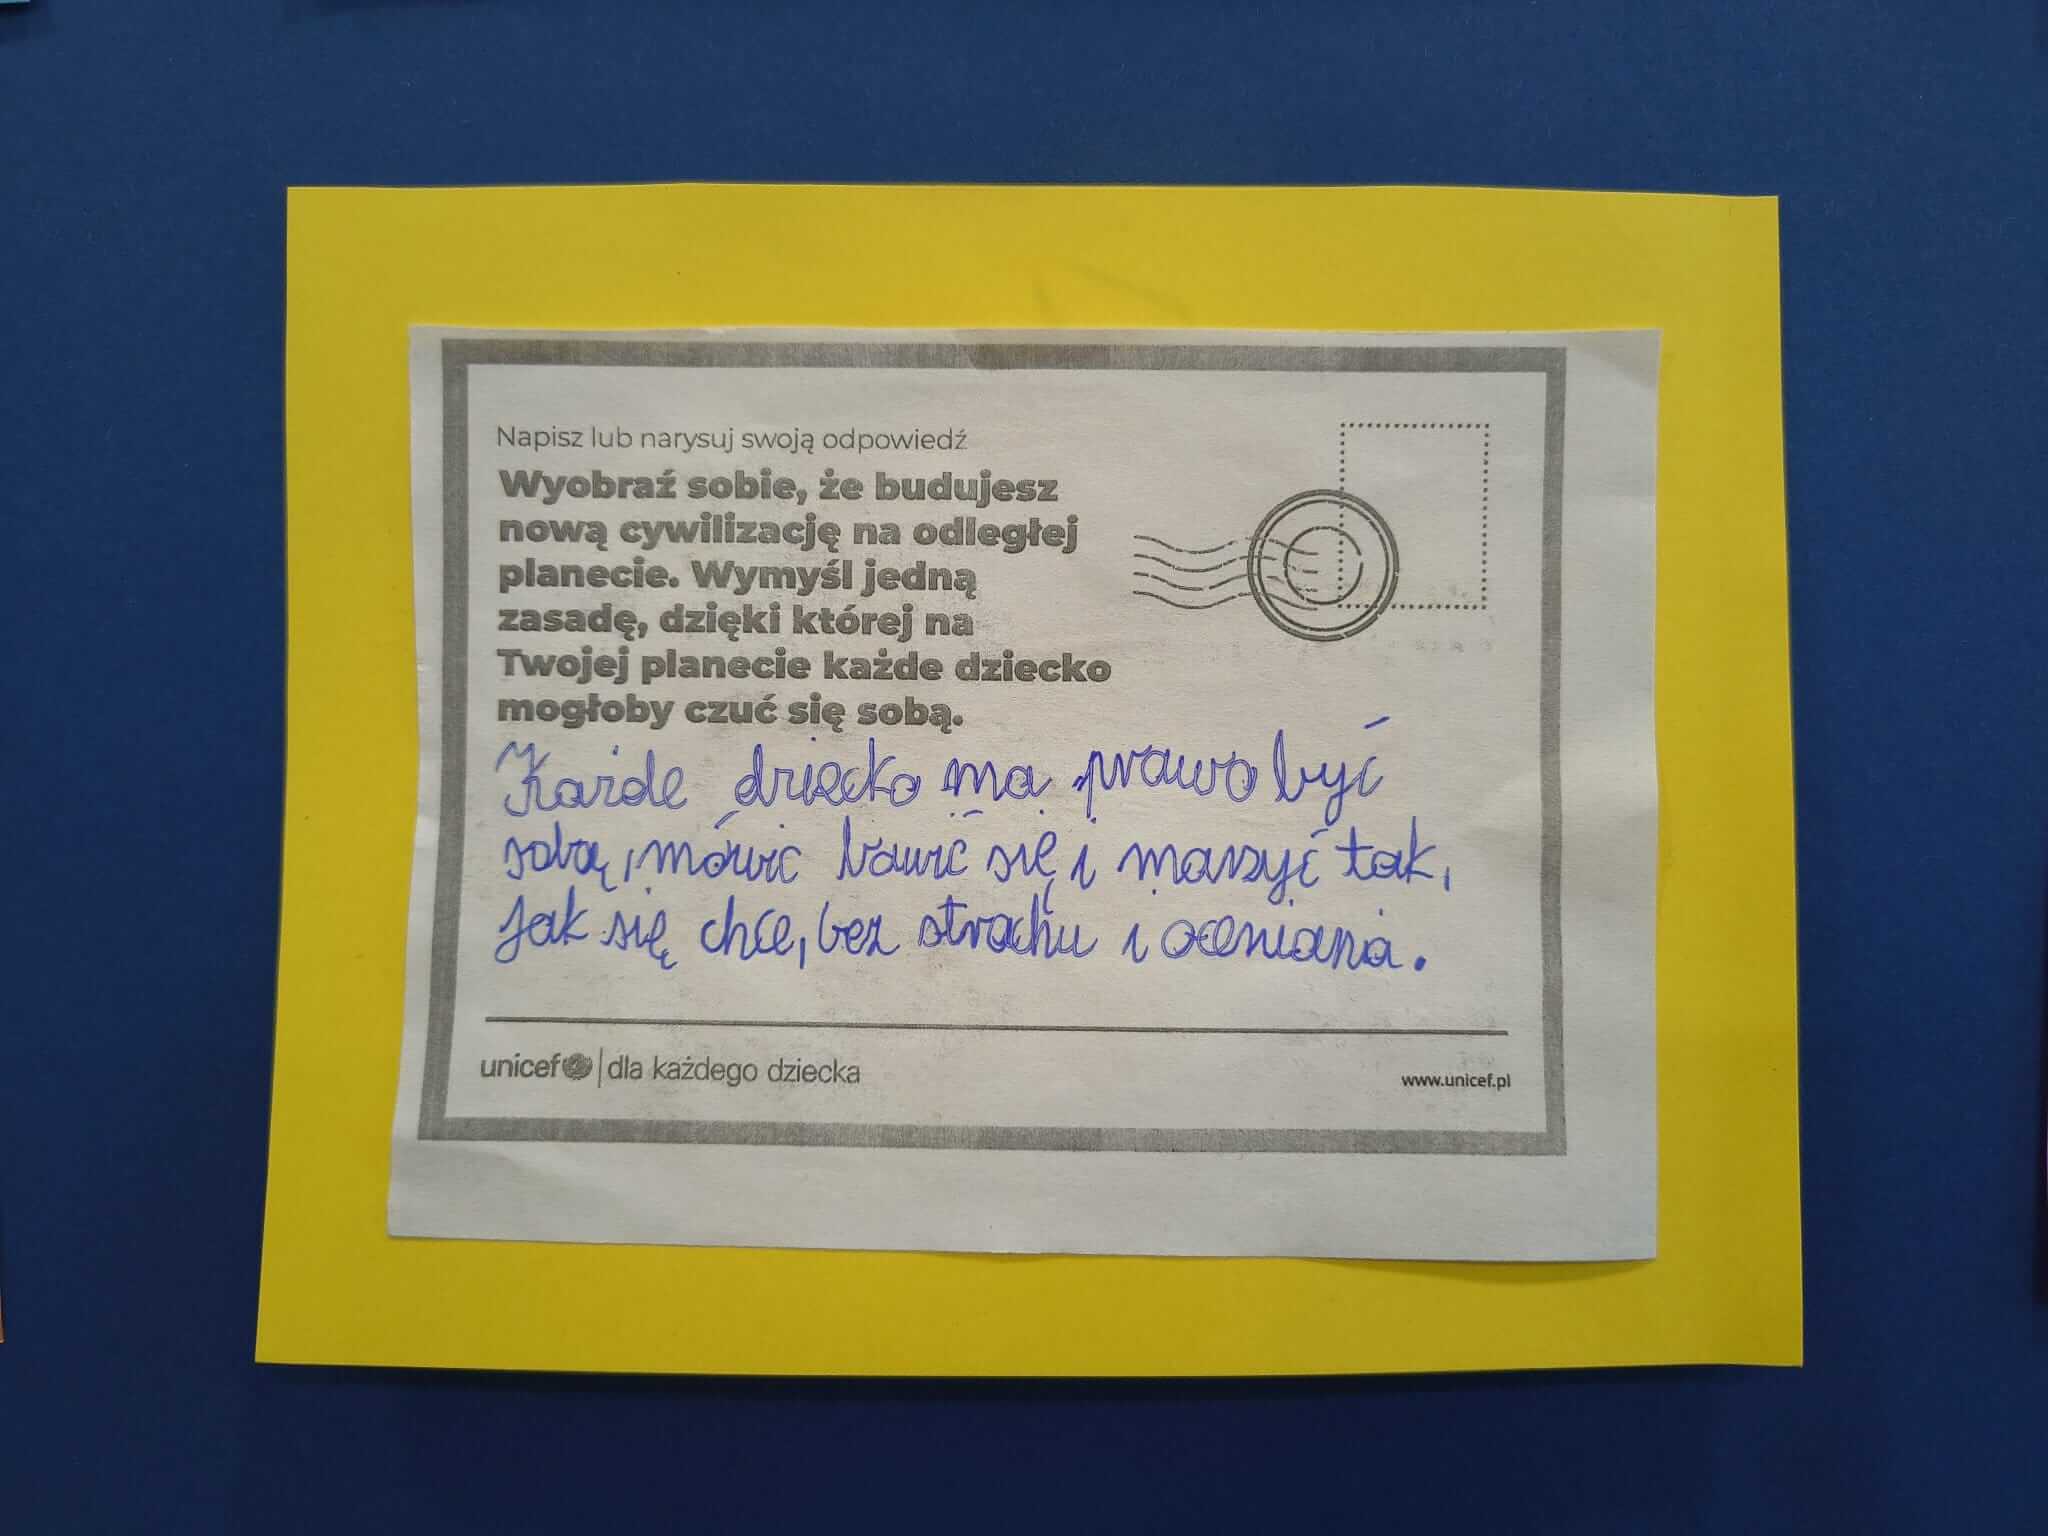 Napisz lub narysuj swoją odpowiedź
Wyobraź sobie, że budujesz
nową cywilizację na odległej
planecie. Wymyśl jedną
zasadę, dzięki której na
Twojej planecie każde dziecko
mogłoby czuć się sobą.
Każde dziecko ma prawo być
sobą, mówić bawić się i marzyć tak,
jak się chce, bez strachu i oceniania.
unicef dla każdego dziecka
www.unicef.pl